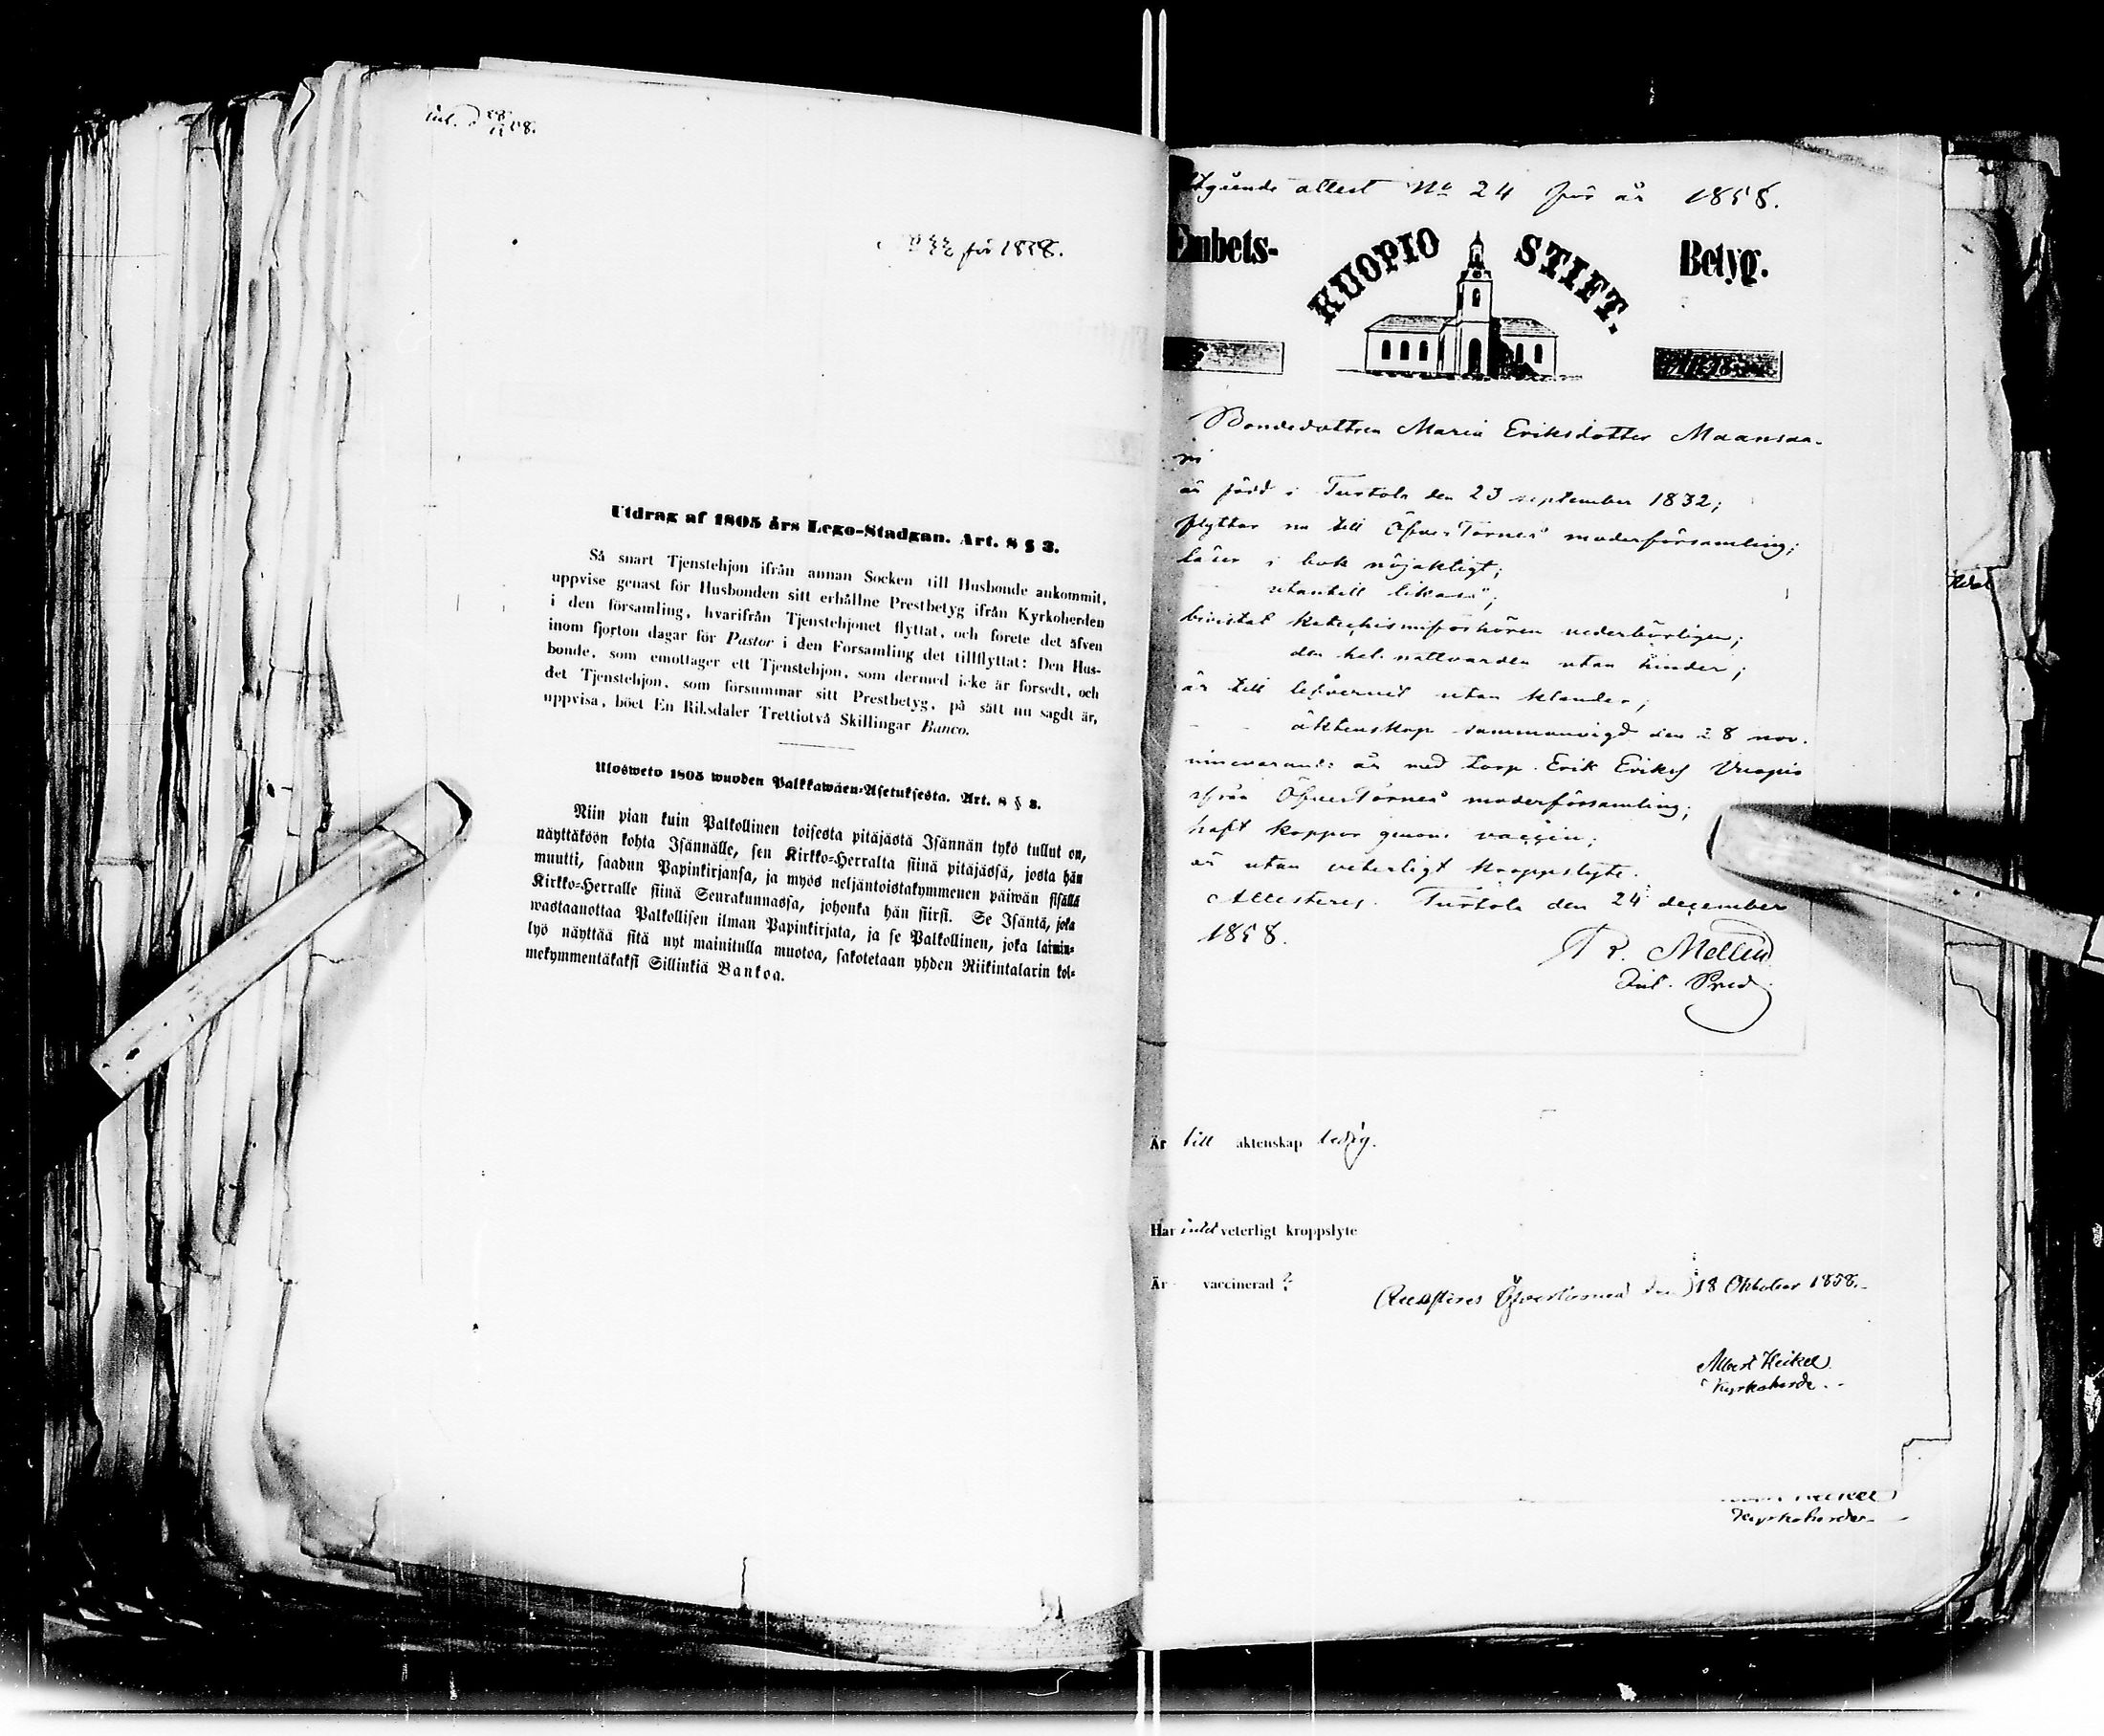 för 1858.
Utdrag af 1805 års Lego-Stadgan. Art. 8 § 3.
Så snart Tjenstehjon ifrån annan Socken till Husbonde ankommit,
uppvise genast för Husbonden sitt erhållne Prestbetyg ifrån Kyrkoherden
i den församling, hvarifrån Tjenstehjonet flyttat, och förete det äfven
inom fjorton dagar för Pastor i den Församling det tillflyttat: Den Hus-
bonde, som emottager ett Tjenstehjon, som dermed icke är försedt, och
det Tjenstehjon, som försummar sitt Prestbetyg, på sätt nu sagdt är,
uppvisa, böet En Riksdaler Trettiotvå Skillingar Banco.
Ulosweto 1805 wuoden Palkkawäen-Asetuksesta. Art. 8 § 3.
Niin pian kuin Palkollinen toisesta pitäjästä Isännän tykö tullut on,
näyttäköön kohta Isännälle, sen Kirkko-Herralta siinä pitäjässä, josta hän
muutti, saadun Papinkirjansa, ja myös neljäntoistakymmenen päiwän sisällä
Kirkko-Herralle siinä Seurakunnassa, johonka hän siirsi. Se Isäntä, joka
wastaanottaa Palkollisen ilman Papinkirjata, ja se Palkollinen, joka laimin-
lyö näyttää sitä nyt mainitulla muotoa, sakotetaan yhden Riikintalarin kol-
mekymmentäkaksi Sillinkiä Bankoa.
attest No 24 för år 1858.
Embets- KUOPIO STIFT. Betyg.
Bondedottren Maria Eriksdotter Maansaa-
ri
är född i Turtola den 23 september 1832;
flyttar nu till ÖfverTorneå moderförsamling;
läser i bok nöjaktigt;
utantill likaså;
bivistat katechismiförhören vederbörligen;
den hel. nattvarden utan hinder;
är till lefvernet utan klander;
äktenskap sammanvigd den 28 nov.
innevarande år med Torp. Erik Vuopio
ifrån ÖfverTorneå moderförsamling;
haft koppor genom vaccin;
är utan veterligt kroppslyte.
Attesteres. Turtola den 24 december
1858. R. Mellin
Pred.
Är till äktenskap ledig.
Har intet veterligt kroppslyte
Är vaccinerad ?
Öfvertorneå den 18 Oktober 1858.
Albert Heikel
Kyrkoherde.
Heikel
Kyrkoherde